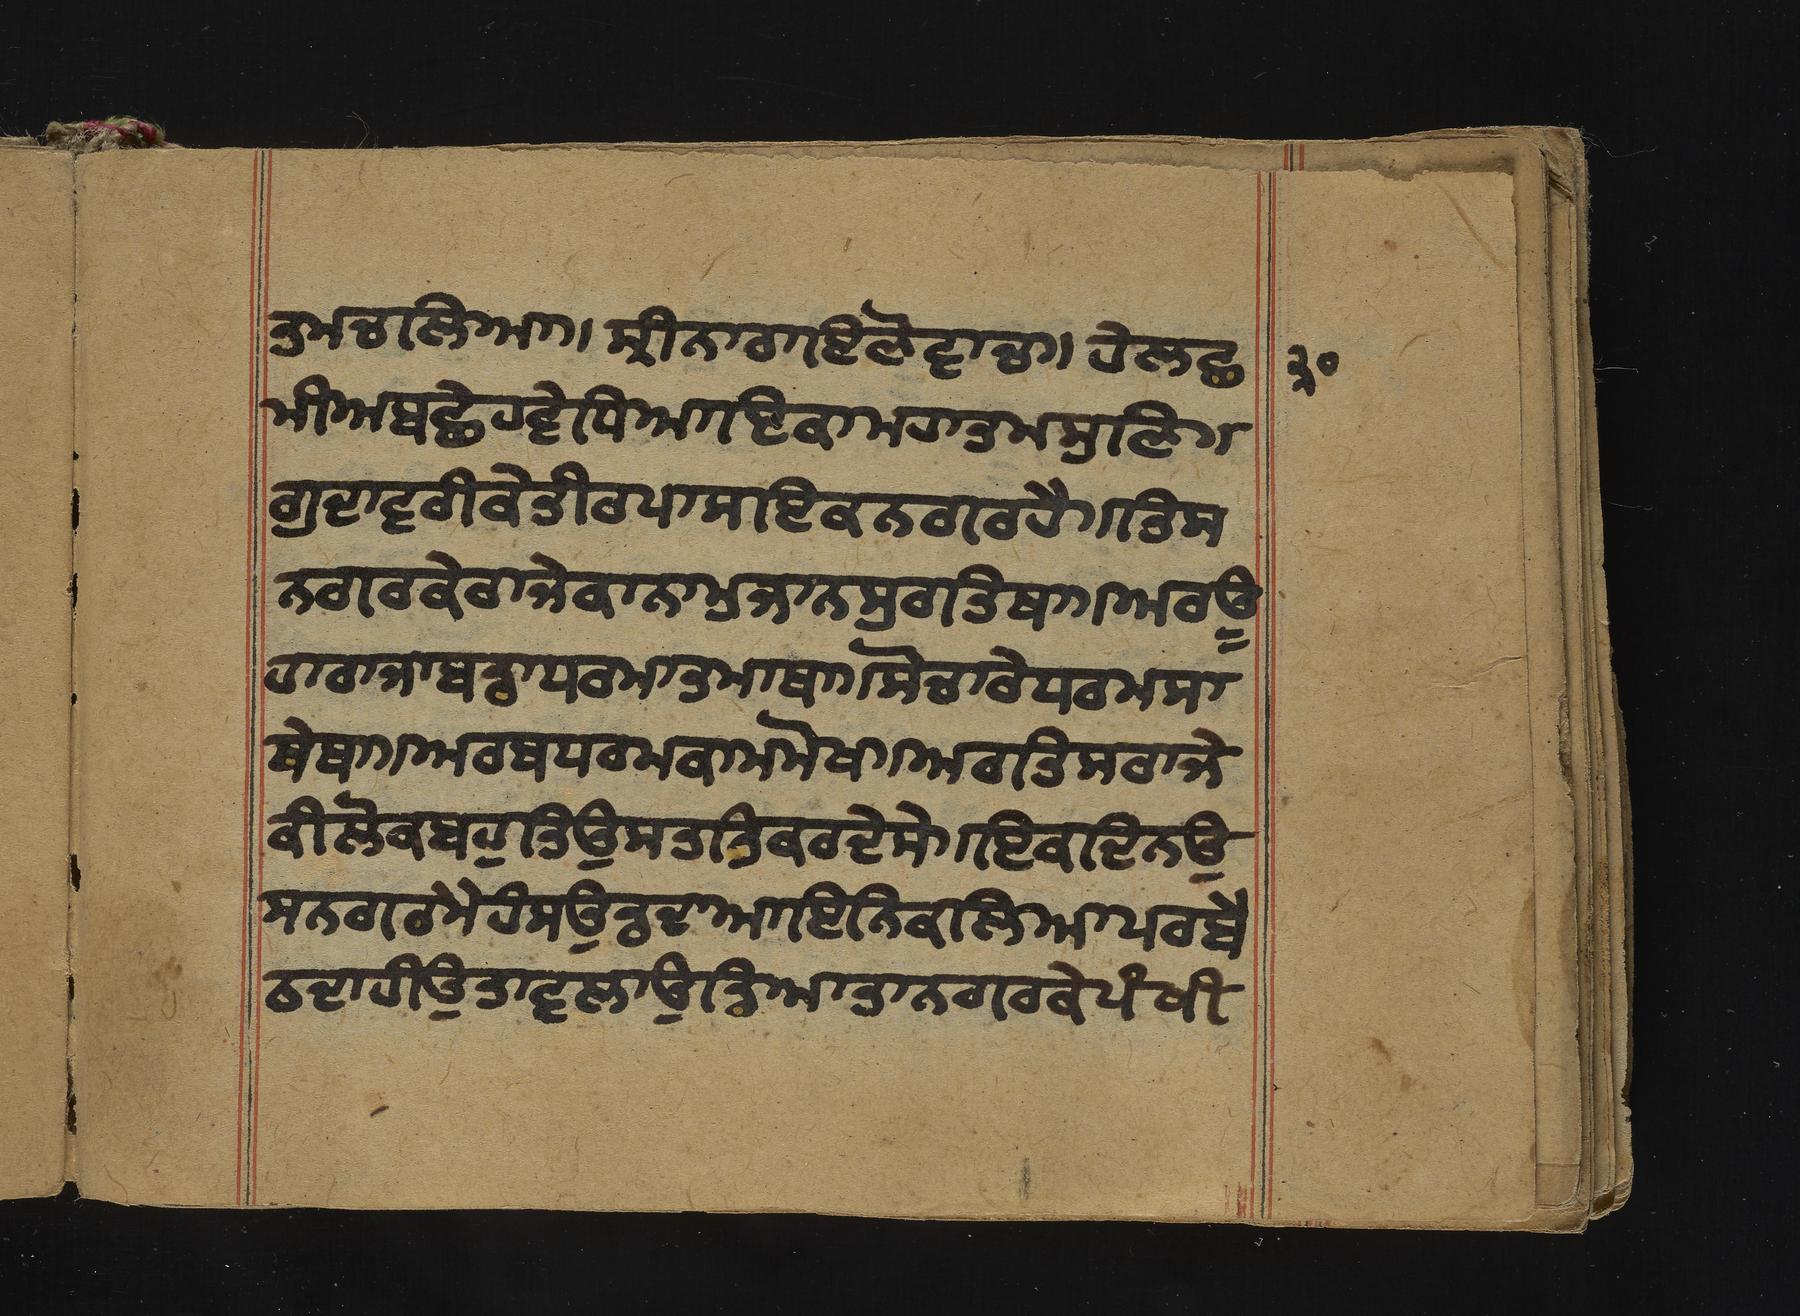 ਤਮਚਲਿਆ॥ ਸ੍ਰੀਨਾਰਾਇਣੋਵਾਚ॥ ਹੇਲਛ
ਮੀਅਬਛੇਹਵੇਧਿਆਇਕਾਮਹਾਤਮਸੁਣਿ॥
ਗੁਦਾਵਰੀਕੇਤੀਰਪਾਸਇਕਨਗਰਹੈ॥ਤਿਸ
ਨਗਰਕੇਰਾਜੇਕਾਨਾਮੁਜਾਨਸੁਰਤਿਥਾ॥ਅਰਉੁ
ਹਾਰਾਜਾਬਡਾਧਰਮਾਤਮਾਥਾ॥ਸੋਚਾਰੇਧਰਮਸਾ
ਥੇਥਾ॥ਅਰਥਧਰਮਕਾਮਮੋਖਾ॥ਅਰਤਿਸਰਾਜੇ
ਕੀਲੋਕਬਹੁਤਿਉਸਤਤਿਕਰਦੇਸੇ॥ਇਕਦਿਨਉ
ਸਨਗਰਮੈਹੰਸਉਡਦਾਆਇਨਿਕਲਿਆਪਰਬੈ
ਠਦਾਹੀਉਤਾਵਲਾਉਡਿਆਤਾਨਗਰਕੇਪੰਖੀ
੩੦